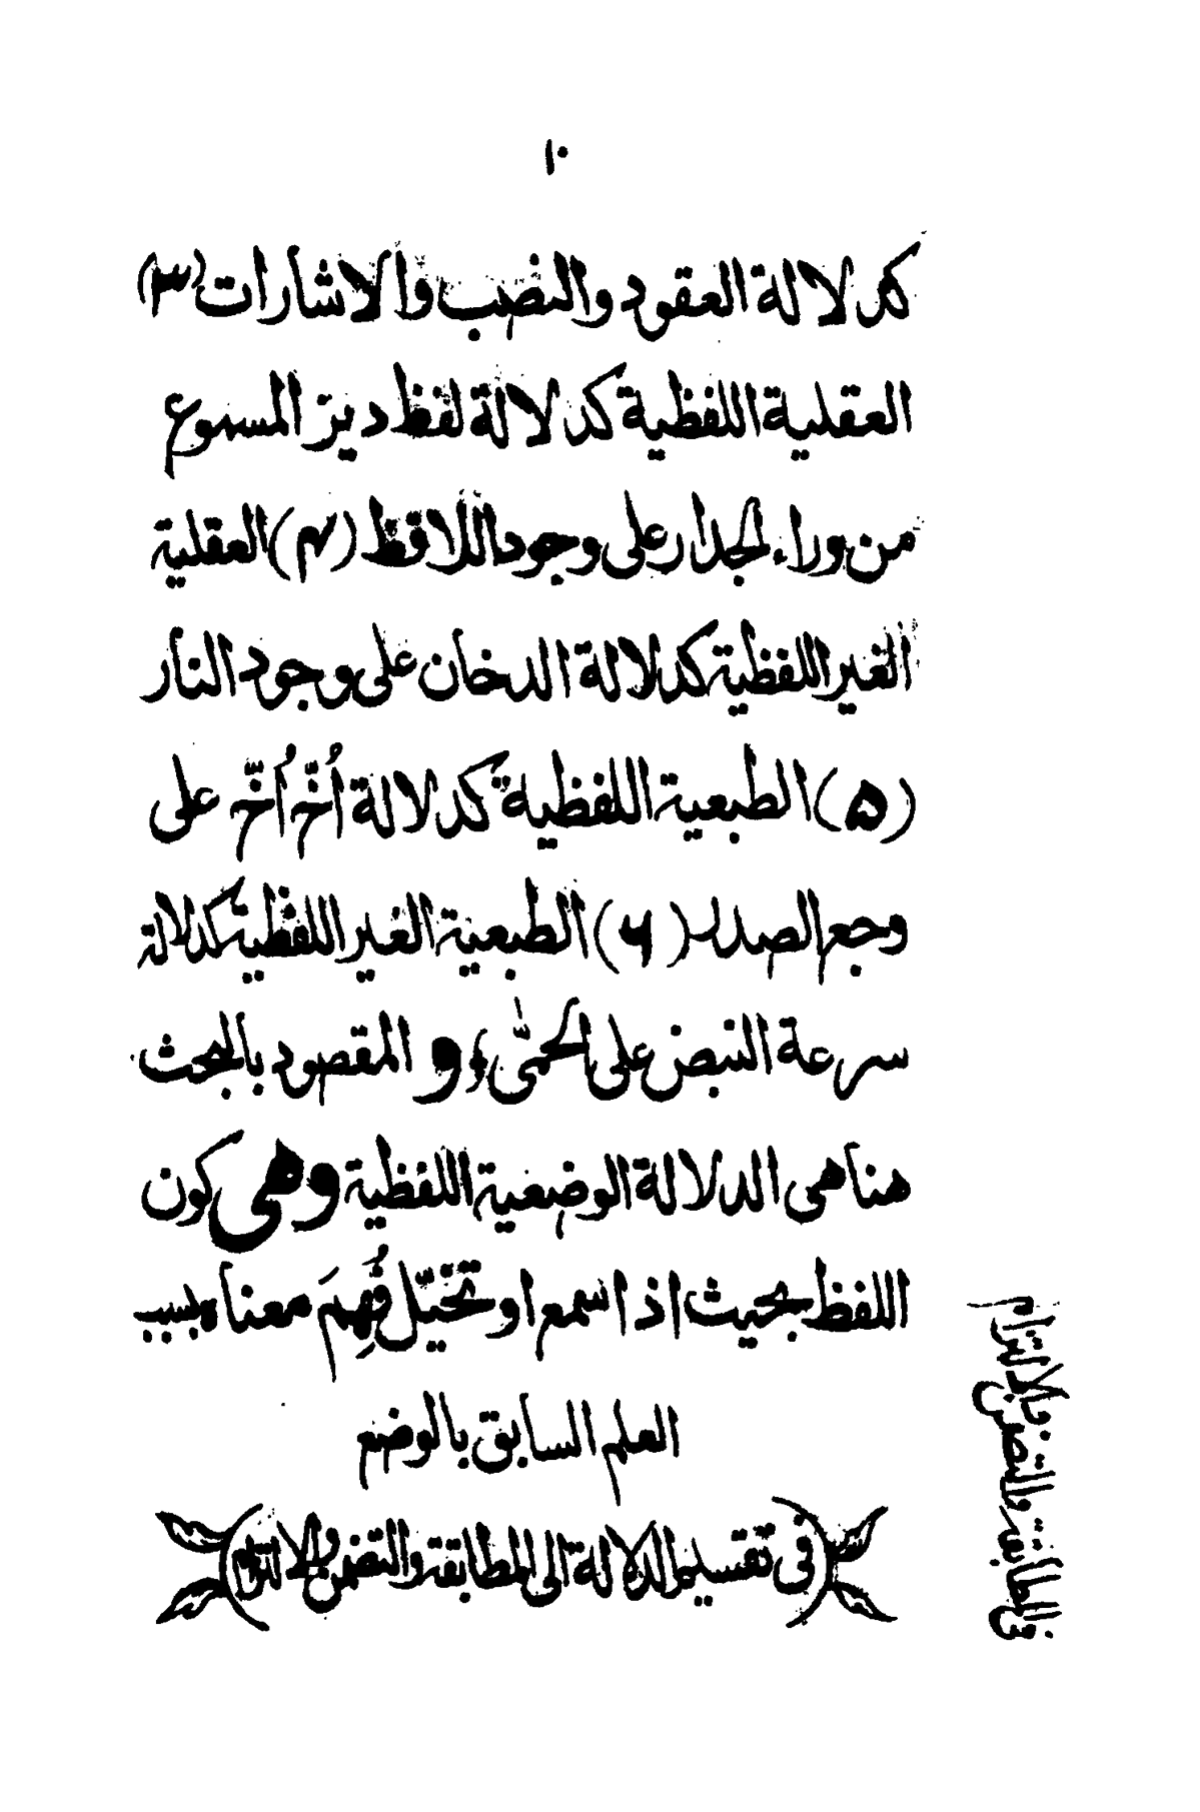 ١٠
كدلالة العقود والنصب والاشارات (٣)
العقلية اللفظية كدلالة لفظ ديز المسموع
من وراء الجدار على وجود اللافظ (۴) العقلية
الغير اللفظية كدلالة الدخان على وجود النار
(۵) الطبعية اللفظية كدلالة اُخّ اُخّ على
وجع الصدر (۶) الطبعية الغير اللفظية كدلالة
سرعة النبض على الحمّٰى؛ و المقصود بالبحث
هنا هى الدلالة الوضعية اللفظية وهى كون
اللفظ بحيث اذا سمع او تخيّل فُهِمَ معناه بسبب
العلم السابق بالوضع
(فى تقسيم الدلالة الى المطابقة والتضمن والالتزام)
فى المطابقة والتضمن والالتزام